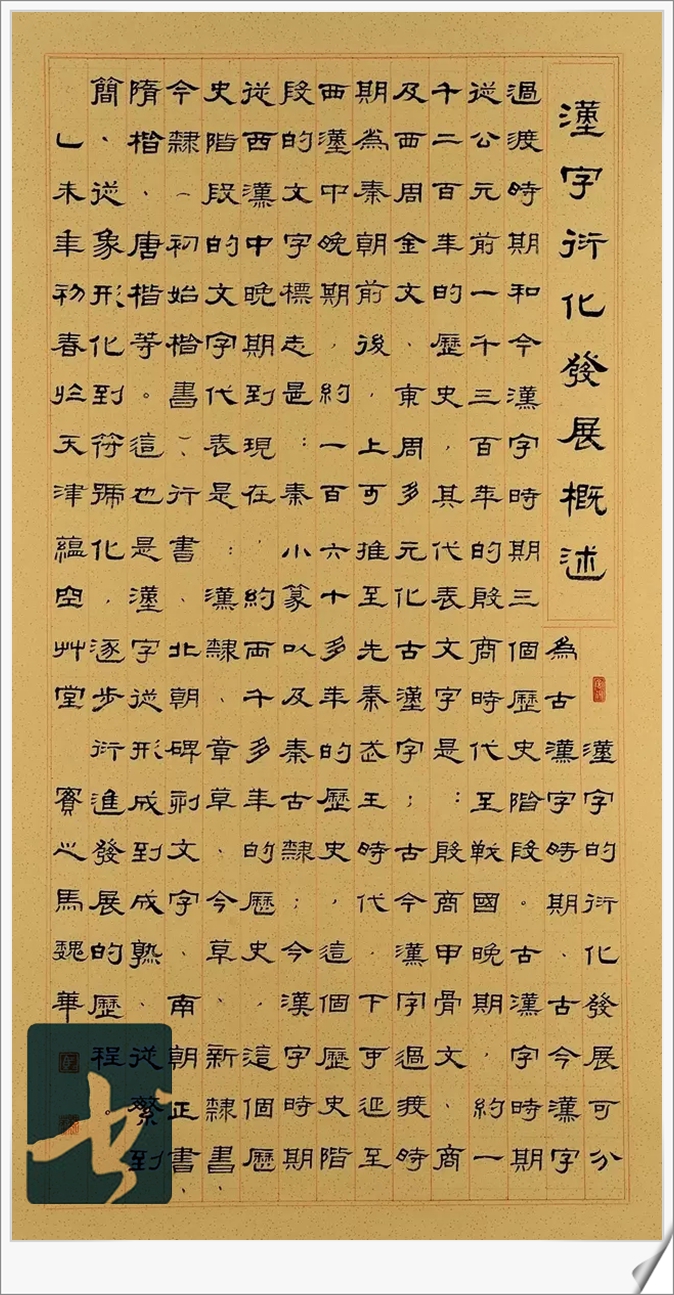 漢字衍化發展概述
漢字的衍化發展可分
為古漢字時期、古今漢字
過渡時期和今漢字時期三個歷史階段。古漢字時期
從公元前一千三百年的殷商時代至戰國晚期,約一
千二百年的歷史,其代表文字是:殷商甲骨文、商
及西周金文、東周多元化古漢字;古今漢字過渡時
期為秦朝前後,上可推至先秦武王時代,下可延至
西漢中晚期,約一百六十多年的歷史,這個歷史階
段的文字標志是:秦小篆以及秦古隸;今漢字時期
從西漢中晚期到現在,約兩千多年的歷史,這個歷
史階段的文字代表是:漢隸、章草、今草、新隸書、
今隸(初始楷書)、行書、北朝碑刻文字、南朝正書、
隋楷、唐楷等。這也是漢字從形成到成熟、從繁到
簡、從象形化到符號化,逐步衍進發展的歷程。
乙未年初春於天津蘊空艸堂 賓之馬魏華